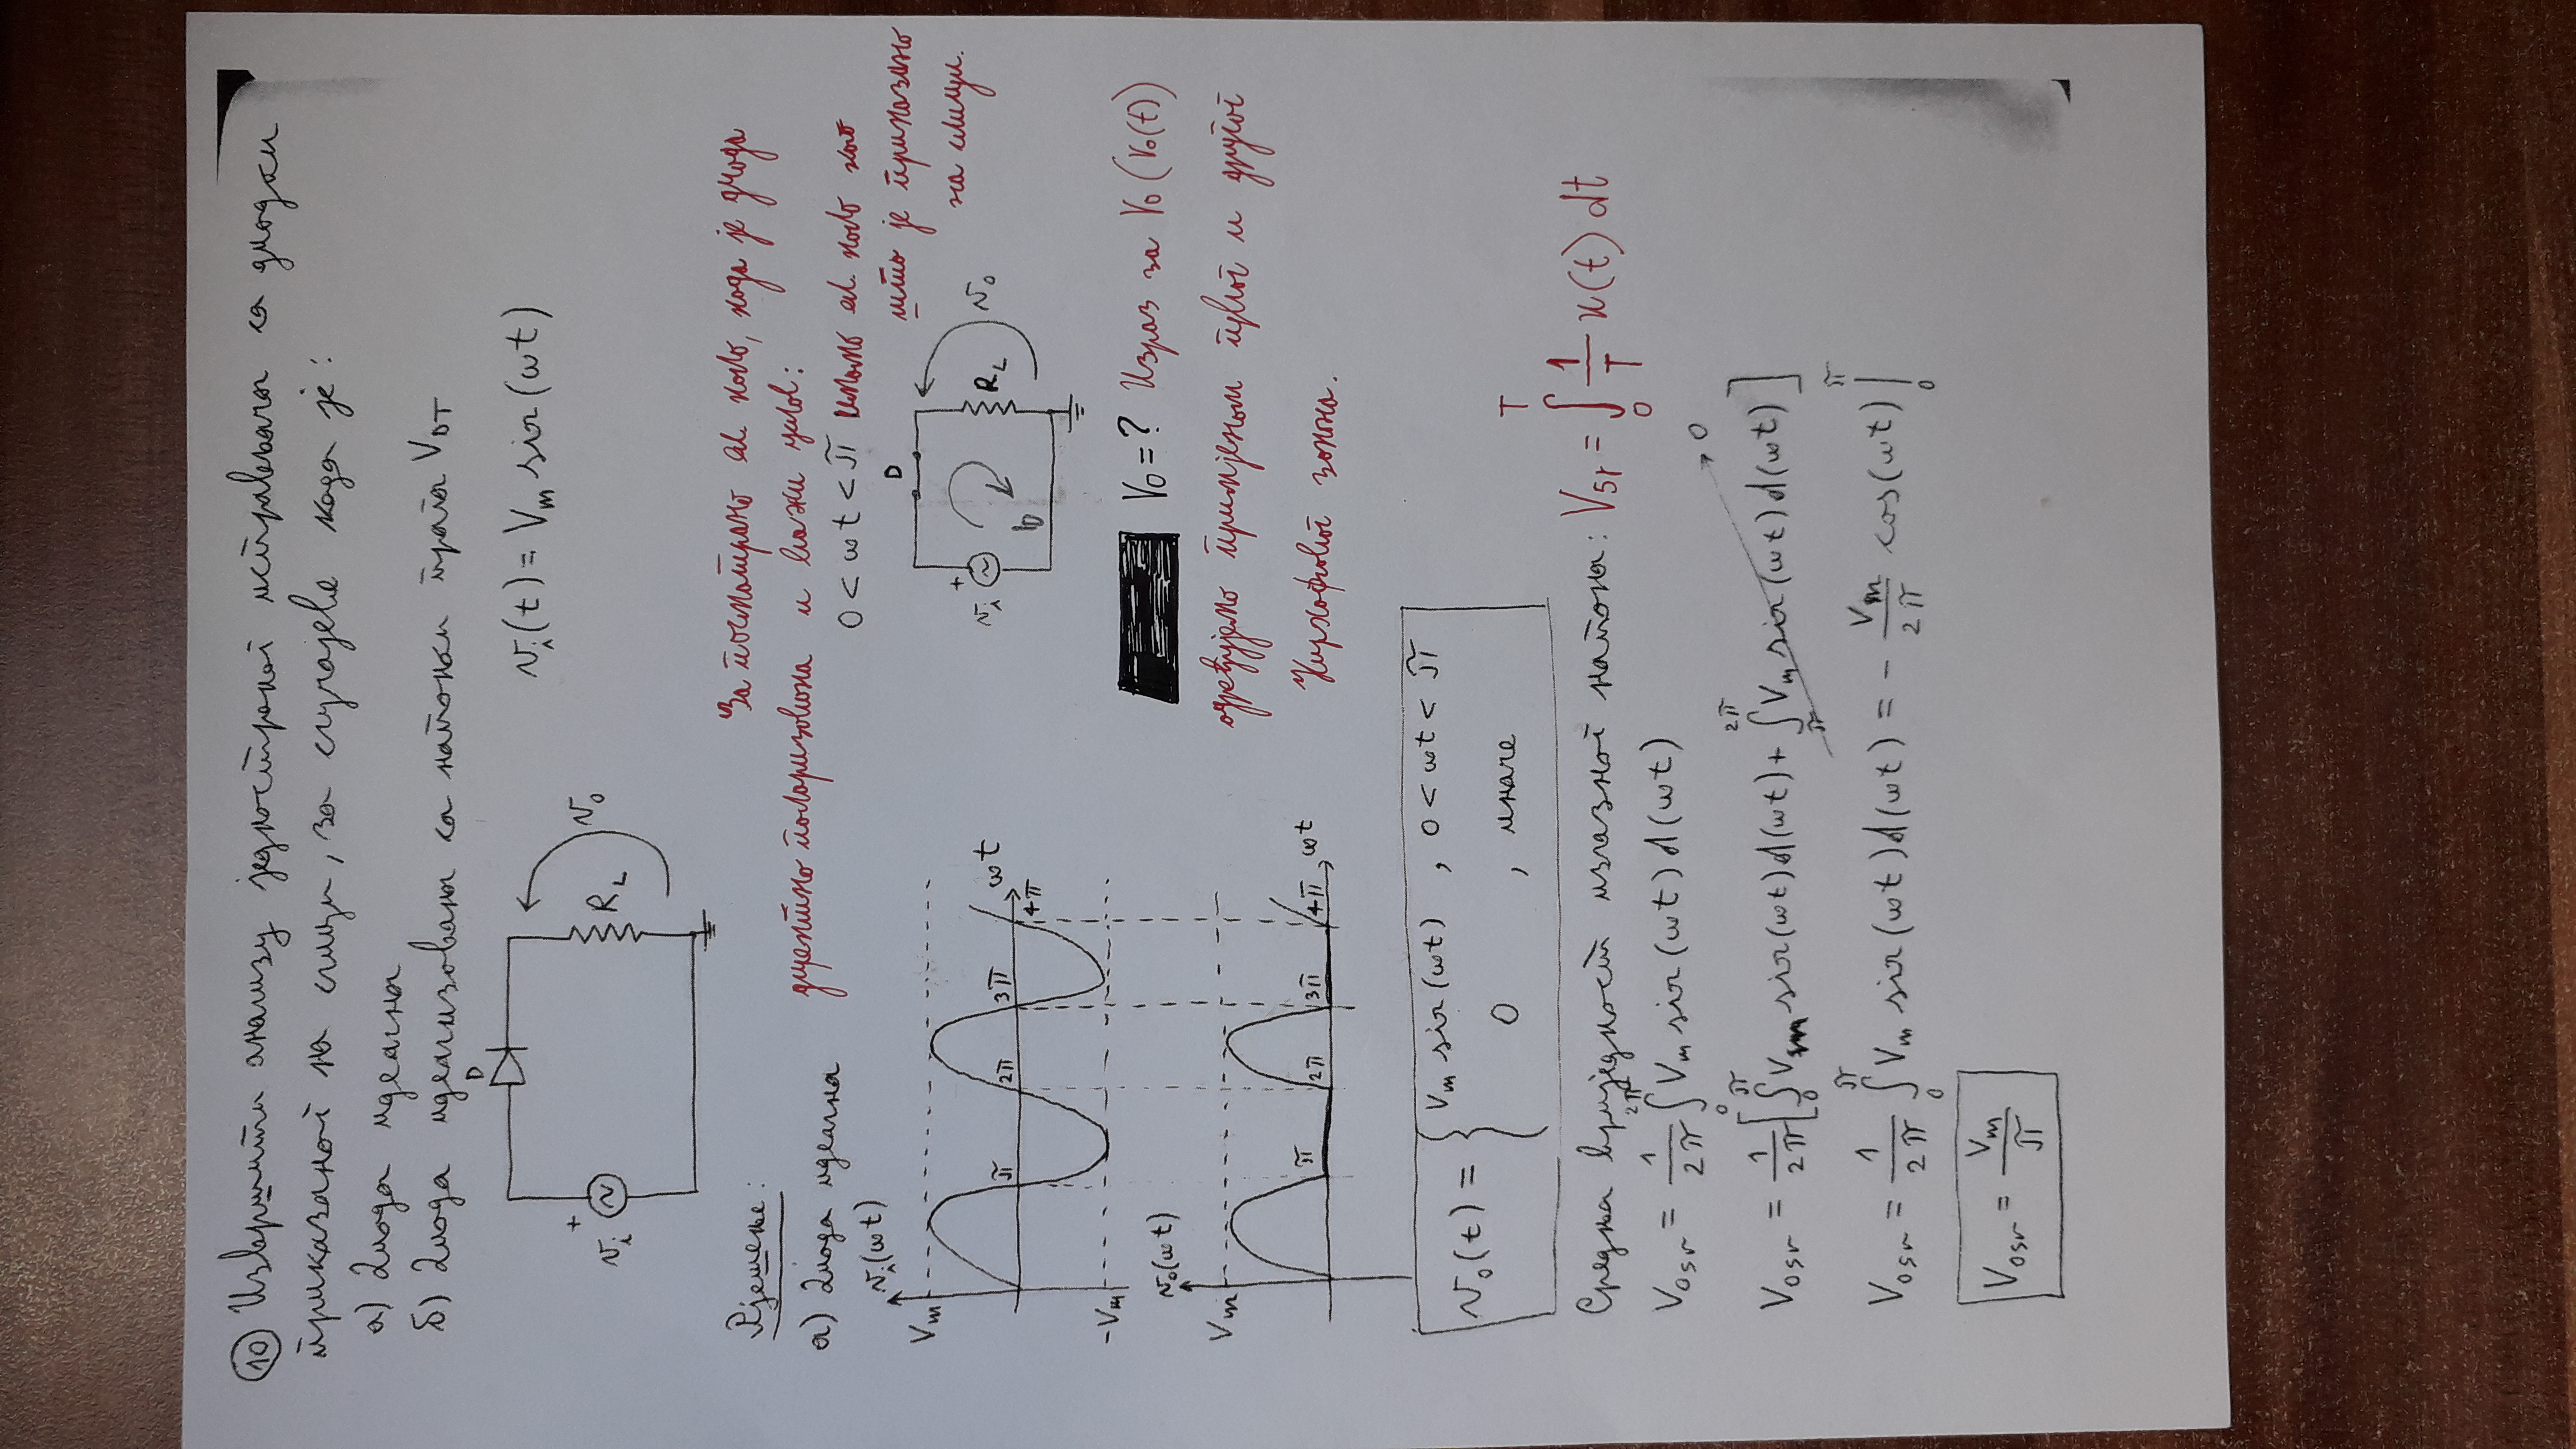 10 Извршити анализу једностраног исправљача са диодом
приказаног на слици, за случајеве када је:
а) Диода идеална
б) Диода идеализована са напоном прага VDT
D
vi(t) = Vm sin(ωt)
+
vi
RL
vo
Рјешење:
За посматрано ел. коло, када је диода
директно поларизована и важи услов:
а) Диода идеална
0 < ωt < π имамо ел. коло као
што је приказано
на слици.
vi(ωt)
Vm
π 2π 3π 4π ωt
-Vm
D
+
vi
ID
RL
vo
Vo = ? Израз за Vo (Vo(t))
одређујемо примјеном првог и другог
Кирхофовог закона.
vo(ωt)
Vm
π 2π 3π 4π ωt
vo(t) = { Vm sin(ωt) , 0 < ωt < π
0 , иначе
Средња вриједност излазног напона: Vsr = ∫₀ᵀ 1/T u(t) dt
Vosr = 1/2π ∫₀²π Vm sin(ωt) d(ωt)
Vosr = 1/2π [ ∫₀π Vm sin(ωt) d(ωt) + ∫π²π Vm sin(ωt) d(ωt) ] → 0
Vosr = 1/2π ∫₀π Vm sin(ωt) d(ωt) = - Vm/2π cos(ωt) |₀π
Vosr = Vm/π